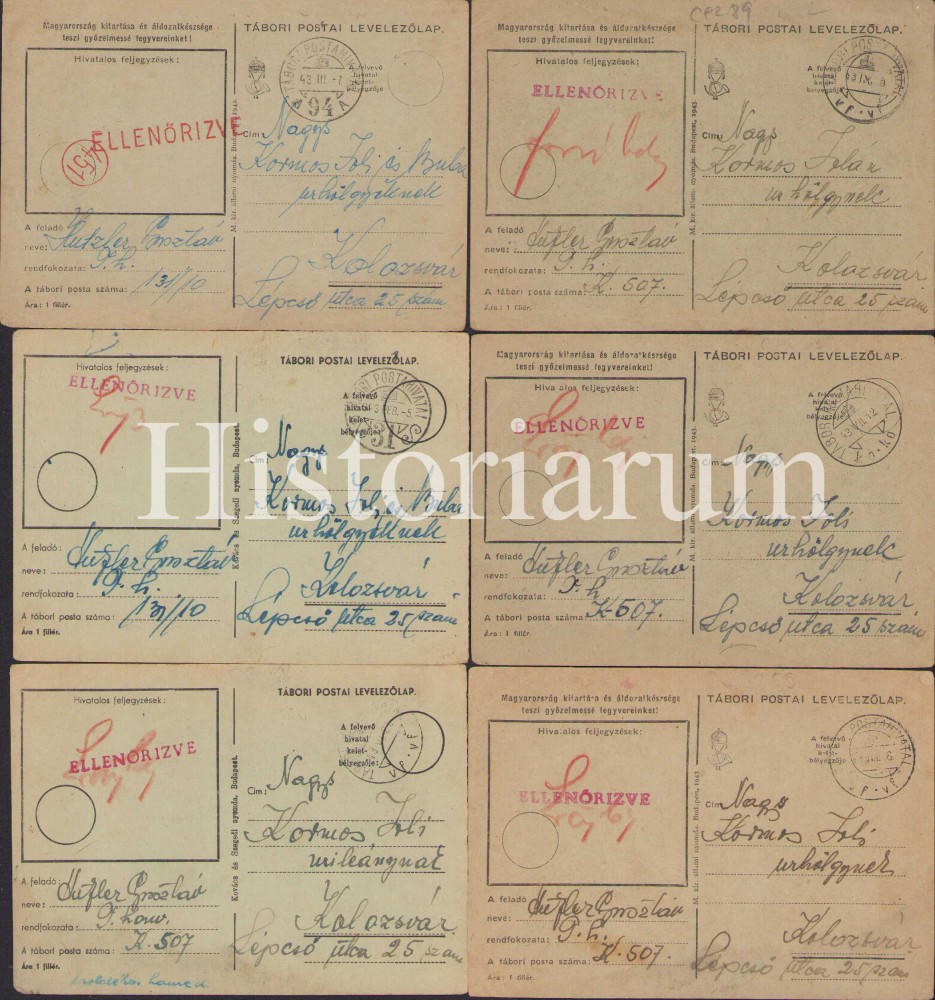 CPZ 89
Magyarország kitartása és áldozatkészsége
teszi győzelmessé fegyvereinket!
Hivatalos feljegyzések:
ELLENŐRIZVE
451
A feladó
neve:
Gusztáv
rendfokozata:
A tábori posta száma: 131/10
Ára: 1 fillér.
M. kir. állami nyomda, Budapest, 1943.
TÁBORI POSTAI LEVELEZŐLAP.
A felvevő
hivatal
kelet-
bélyegzője
TÁBORI POSTAHIVATAL
43 III. -7
94
A
Cím: Nagys
Kormos Joli és Buba
urhölgyeknek
Kolozsvár
Lépcső utca 25 szám
Magyarország kitartása és áldozatkészsége
teszi győzelmessé fegyvereinket!
Hivatalos feljegyzések:
ELLENŐRIZVE
A feladó
neve: Gusztáv
rendfokozata:
A tábori posta száma: K. 507.
Ára: 1 fillér.
M. kir. állami nyomda, Budapest, 1943.
TÁBORI POSTAI LEVELEZŐLAP.
A felvevő
hivatal
kelet-
bélyegzője
Cím: Nagys
Kormos
urhölgynek
Kolozsvár
Lépcső utca 25 szám
Hivatalos feljegyzések:
ELLENŐRIZVE
A feladó:
neve: Gusztáv
rendfokozata:
A tábori posta száma: 131/10
Ára 1 fillér.
Kovács és Szegedi nyomda, Budapest.
TÁBORI POSTAI LEVELEZŐLAP.
A felvevő
hivatal
kelet-
bélyegzője:
TÁBORI POSTAHIVATAL
31
Cím: Nagys
Kormos Joli és Buba
urhölgyeknek
Kolozsvár
Lépcső utca 25 szám
Magyarország kitartása és áldozatkészsége
teszi győzelmessé fegyvereinket!
Hivatalos feljegyzések:
ELLENŐRIZVE
A feladó
neve: Gusztáv
rendfokozata:
A tábori posta száma: K-507.
Ára: 1 fillér.
M. kir. állami nyomda, Budapest, 1943.
TÁBORI POSTAI LEVELEZŐLAP.
A felvevő
hivatal
kelet-
bélyegzője
Cím: Nagys
Kormos Joli
urhölgynek
Kolozsvár
Lépcső utca 25 szám
Historiarum
Hivatalos feljegyzések:
ELLENŐRIZVE
A feladó:
neve: Gusztáv
rendfokozata: honv.
A tábori posta száma: K-507
Ára 1 fillér.
Kovács és Szegedi nyomda, Budapest.
TÁBORI POSTAI LEVELEZŐLAP.
A felvevő
hivatal
kelet-
bélyegzője:
Cím: Nagys
Kormos Joli
urileánynak
Kolozsvár
Lépcső utca 25 szám
Magyarország kitartása és áldozatkészsége
teszi győzelmessé fegyvereinket!
Hivatalos feljegyzések:
ELLENŐRIZVE
A feladó
neve: Gusztáv
rendfokozata:
A tábori posta száma: K-507.
Ára: 1 fillér.
M. kir. állami nyomda, Budapest, 1943.
TÁBORI POSTAI LEVELEZŐLAP.
A felvevő
hivatal
kelet-
bélyegzője
Cím: Nagys
Kormos Joli
urhölgynek
Kolozsvár
Lépcső utca 25 szám